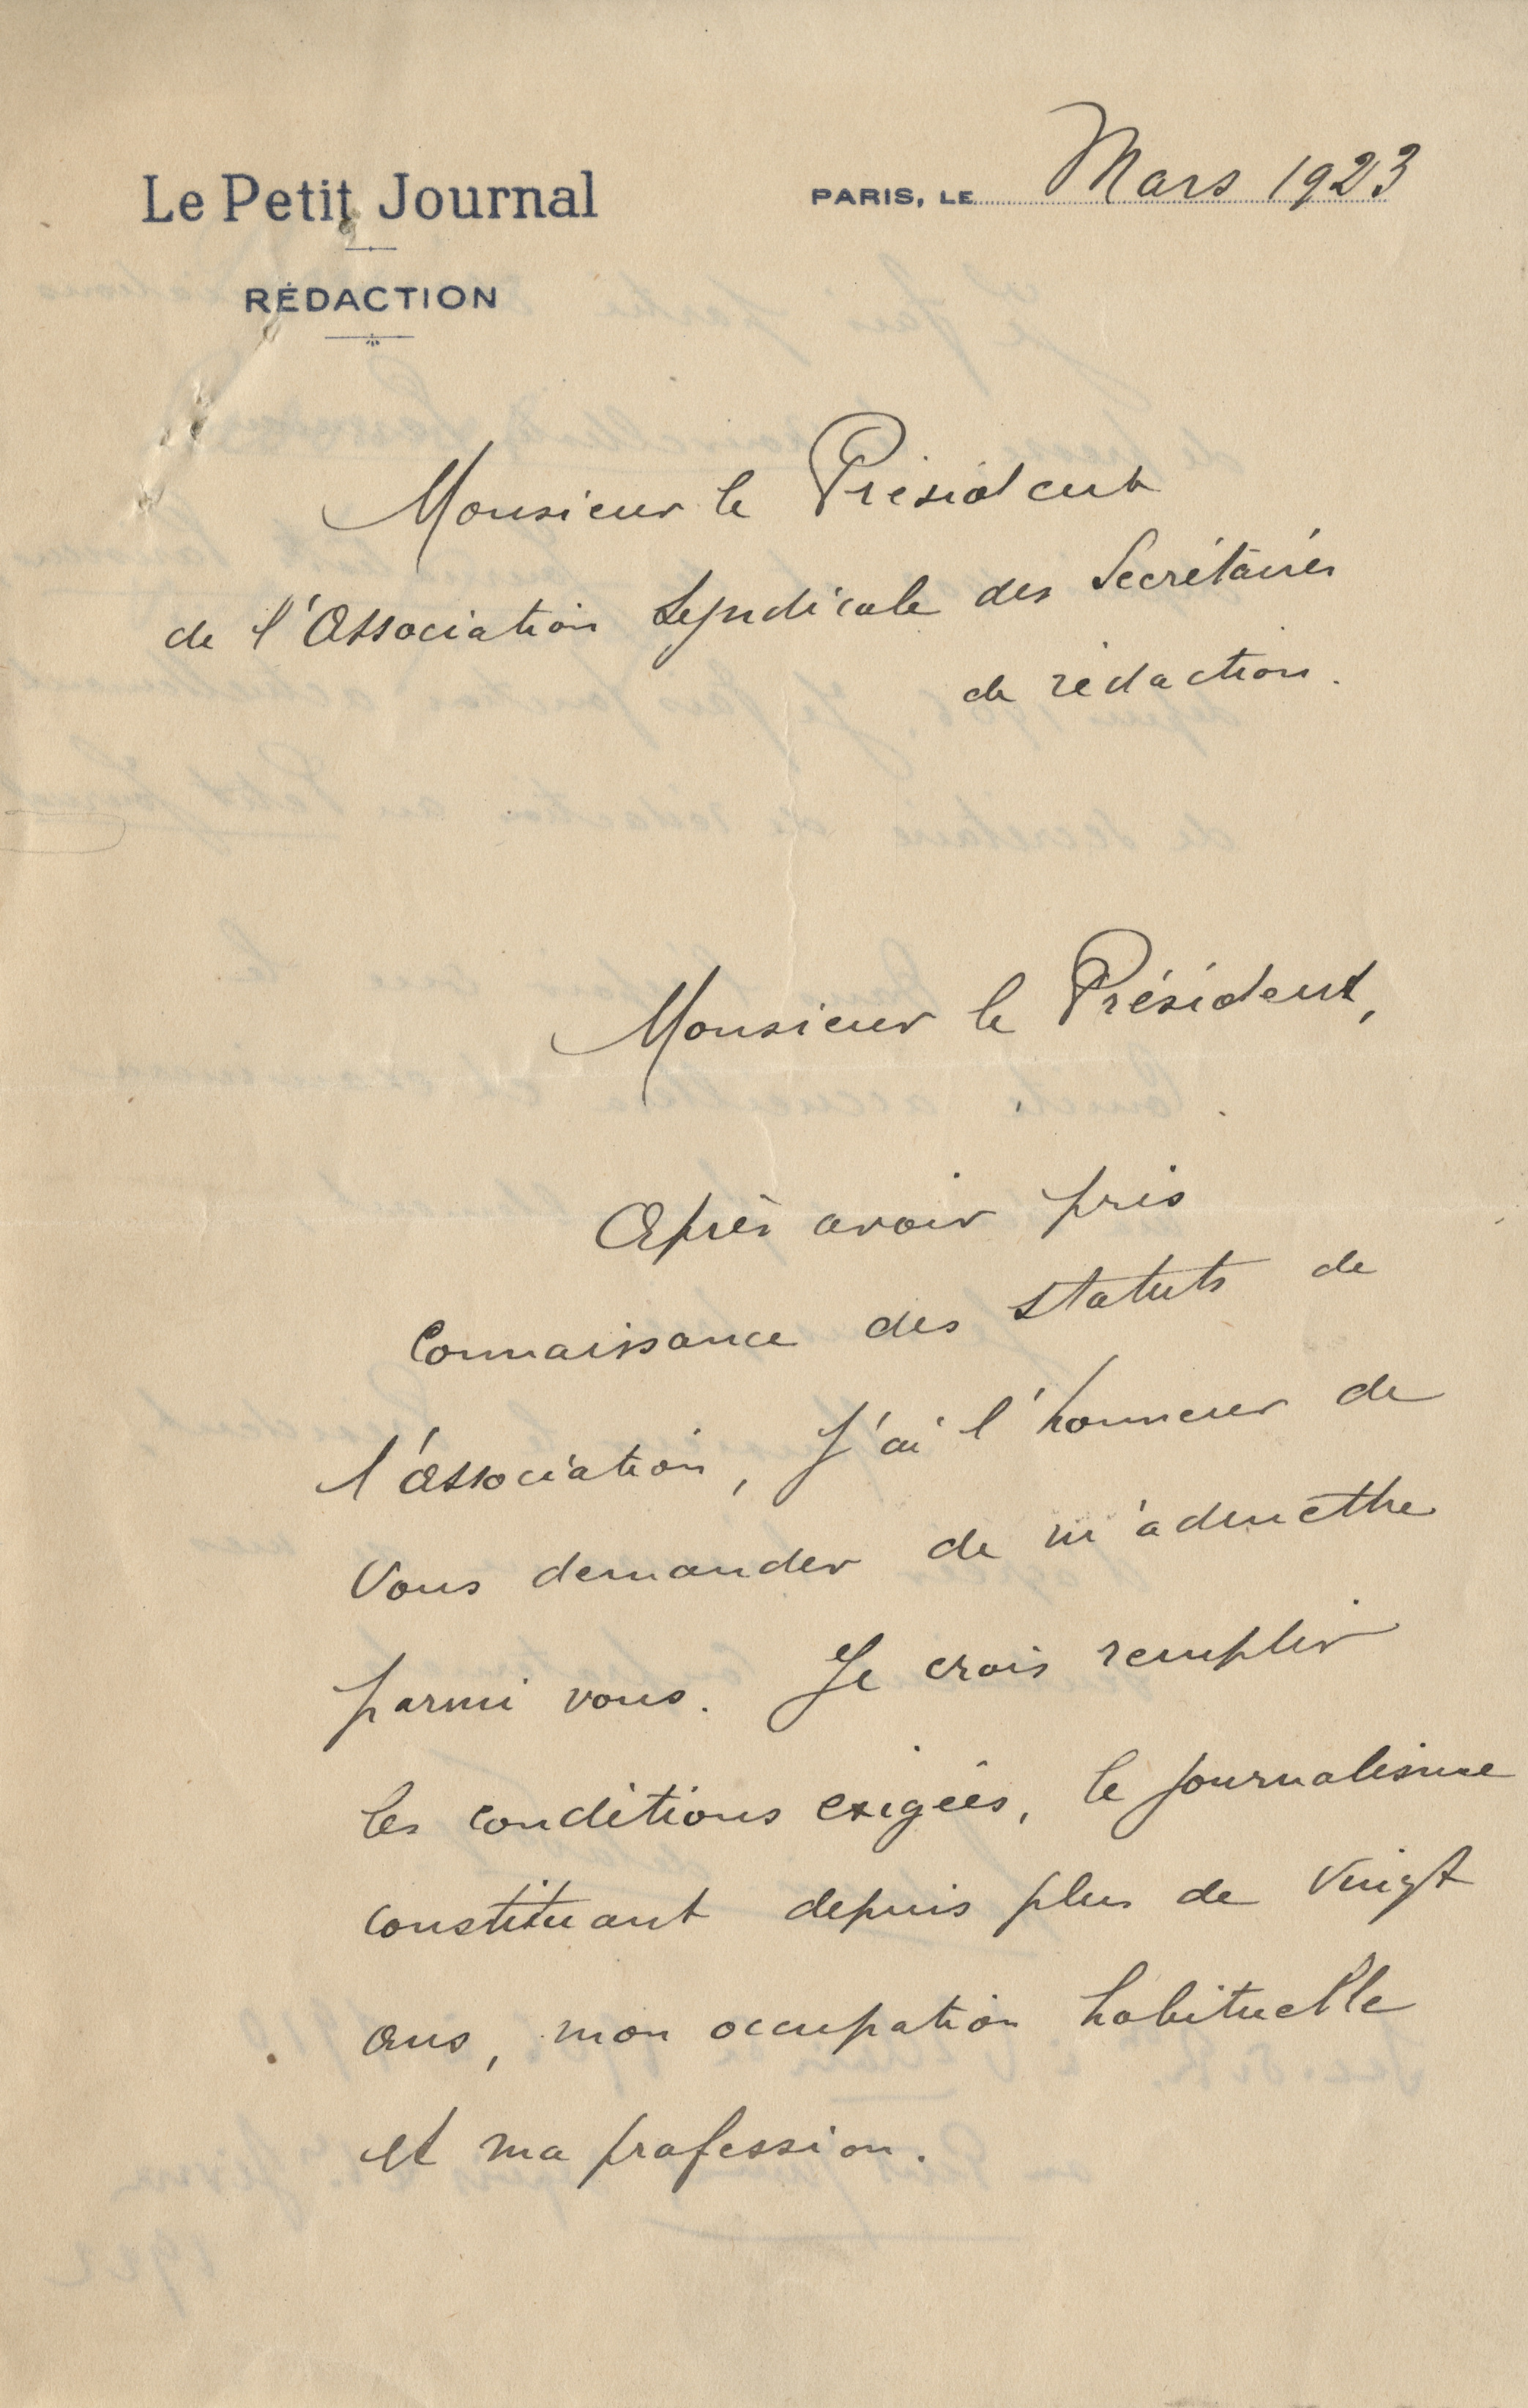 Le Petit Journal
RÉDACTION
PARIS, LE Mars 1923
Monsieur le Président
de l'Association Syndicale des Secrétaires
de rédaction.
Monsieur le Président,
Après avoir pris
connaissance des statuts de
l'association, j'ai l'honneur de
vous demander de m'admettre
parmi vous. Je crois remplir
les conditions exigées, le journalisme
constituant depuis plus de vingt
ans, mon occupation habituelle
et ma profession.